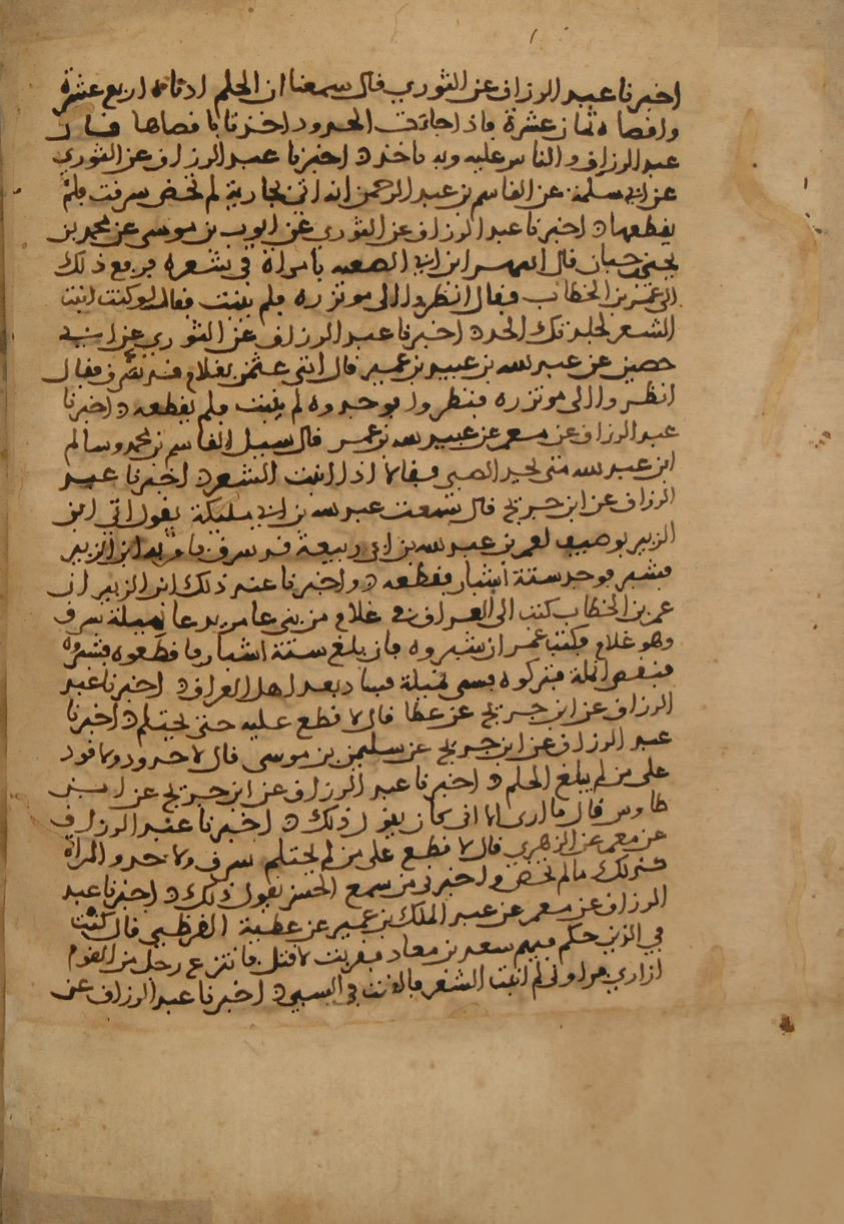 اخبرنا عبد الرزاق عن الثوري قال سمعنا ان الحلم ادناه اربع عشرة
واقصاه ثمان عشرة فاذا جاءت الحدود اخذنا باقصاها قال
عبد الرزاق والناس عليه وبه ناخذ ه اخبرنا عبد الرزاق عن الثوري
عن ابي سلمة عن القاسم بن عبد الرحمن انه اتي بجارية لم تحض سرقت فلم
يقطعها ه اخبرنا عبد الرزاق عن الثوري عن ايوب بن موسى عن محمد بن
يحيى حبان قال ابتهر ابن ابي الصعبه بامراة في شعره فرفع ذلك
الى عمر بن الخطاب فقال انظروا الى موتزره فلم ينبت فقال لو كنت انبت
الشعر لجلدتك الحد ه اخبرنا عبد الرزاق عن الثوري عن ابي
حصين عن عبد الله بن عبيد بن عمير قال اتي عثمن بغلام قد سرق فقال
انظروا الى موتزره فنظروا فوجدوه لم ينبت فلم يقطعه ه اخبرنا
عبد الرزاق عن معمر عن عبيد الله بن عمر قال سيل القاسم بن محمد وسالم
ابن عبد الله متى يحد الصبي فقالا اذا انبت الشعر ه اخبرنا عبد
الرزاق عن ابن جريج قال سمعت عبد الله بن ابي مليكة يقول اتي ابن
الزبير بوصيف لعمر بن عبد الله بن ابي ربيعة قد سرق فامر به ابن الزبير
فشبر فوجد ستة اشبار فقطعه ه واخبرنا عند ذلك ابن الزبير ان
عمر بن الخطاب كتب الى العراق في غلام من بني عامر يدعا نميلة سرق
وهو غلام فكتب عمر ان شبروه فان بلغ ستة اشبار فاقطعوه فشبروه
فنقص انملة فتركوه فسمي نميلة فساد بعد اهل العراق ه اخبرنا عبد
الرزاق عن ابن جريج عن عطا قال لا قطع عليه حتى يحتلم ه اخبرنا
عبد الرزاق عن ابن جريج عن سليمن بن موسى قال لا حدود ولا قود
على من لم يبلغ الحلم ه اخبرنا عبد الرزاق عن ابن جريج عن ابن
طاوس قال ما ارى الا ابي كان يقول ذلك ه اخبرنا عبد الرزاق
عن معمر عن الزهري قال لا قطع على من لم يحتلم سرق ولا حد والمراة
كذلك ما لم تحض واخبرني من سمع الحسن يقول ذلك ه اخبرنا عبد
الرزاق عن معمر عن عبد الملك بن عمير عن عطية القرظي قال كنت
في الذين حكم فيهم سعد بن معاد فقربت لاقتل فانتزع رجل من القوم
ازاري فراوني لم انبت الشعر فالقيت في السبي ه اخبرنا عبد الرزاق عن